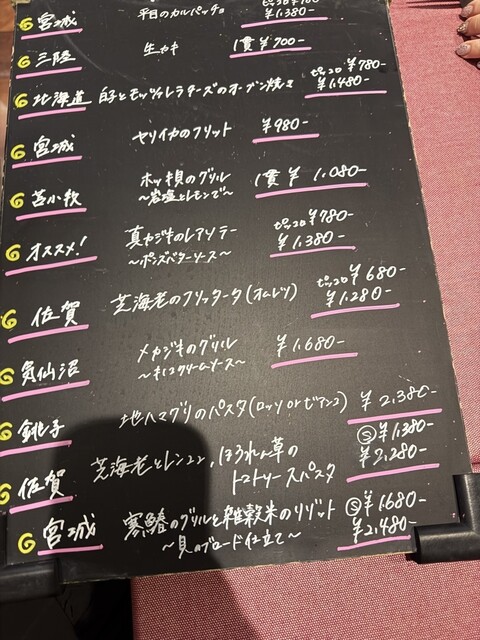 宮城 平目のカルパッチョ ¥1.380-
三陸 生カキ 1貫 ¥700-
北海道 白子とモッツァレラチーズのオーブン焼き ピッコロ ¥780-
¥1.480-
宮城 ヤリイカのフリット ¥980-
苫小牧 ホッキ貝のグリル 1貫 ¥1.080-
～岩塩とレモンで～
オススメ! 真カジキのレアソテー ピッコロ ¥780-
～ポンズバターソース～ ¥1.380-
佐賀 芝海老のフリッタータ(オムレツ) ピッコロ ¥680-
¥1.280-
気仙沼 メカジキのグリル ¥1.680-
～キノコクリームソース～
銚子 地ハマグリのパスタ(ロッソorビアンコ) ¥2.380-
佐賀 芝海老とレンコン、ほうれん草の Ⓢ¥1380-
トマトソースパスタ ¥2,280-
宮城 寒鰆のグリルと雑穀米のリゾット Ⓢ¥1680-
～貝のブロード仕立て～ ¥2,480-